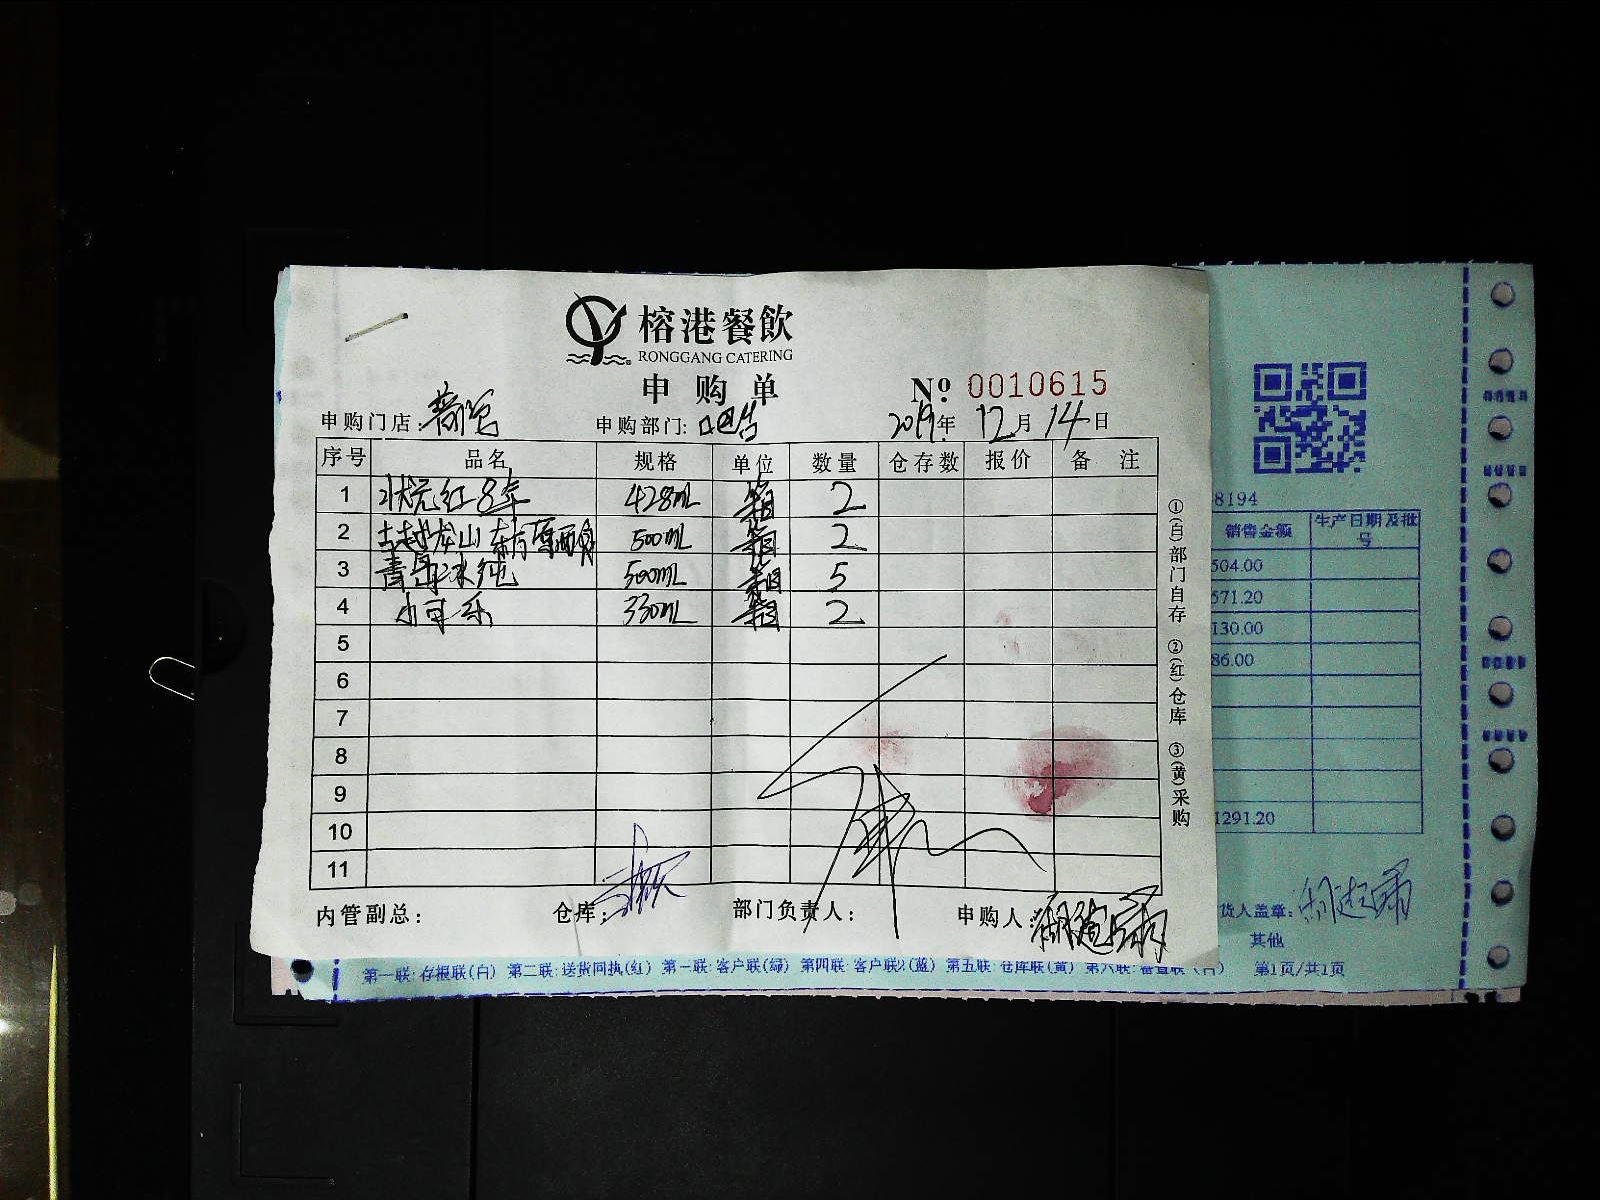 榕港餐飲
RONGGANG CATERING
申购单
№ 0010615
申购门店: 申购部门: 吧台 2019年 12月 14日
序号 品名 规格 单位 数量 仓存数 报价 备注
1 状元红8年 428ML 箱 2
2 古越龙山 500ML 箱 2
3 青岛冰纯 500ML 箱 5
4 小可乐 330ML 箱 2
5
6
7
8
9
10
11
内管副总: 仓库: 部门负责人: 申购人:
①(白)部门自存 ②(红)仓库 ③(黄)采购
8194
销售金额 生产日期及批号
504.00
571.20
130.00
86.00
1291.20
货人盖章:
其他
第二联:送货回执(红) 第四联:客户联2(蓝) 第五联:仓库联(黄) 第1页/共1页